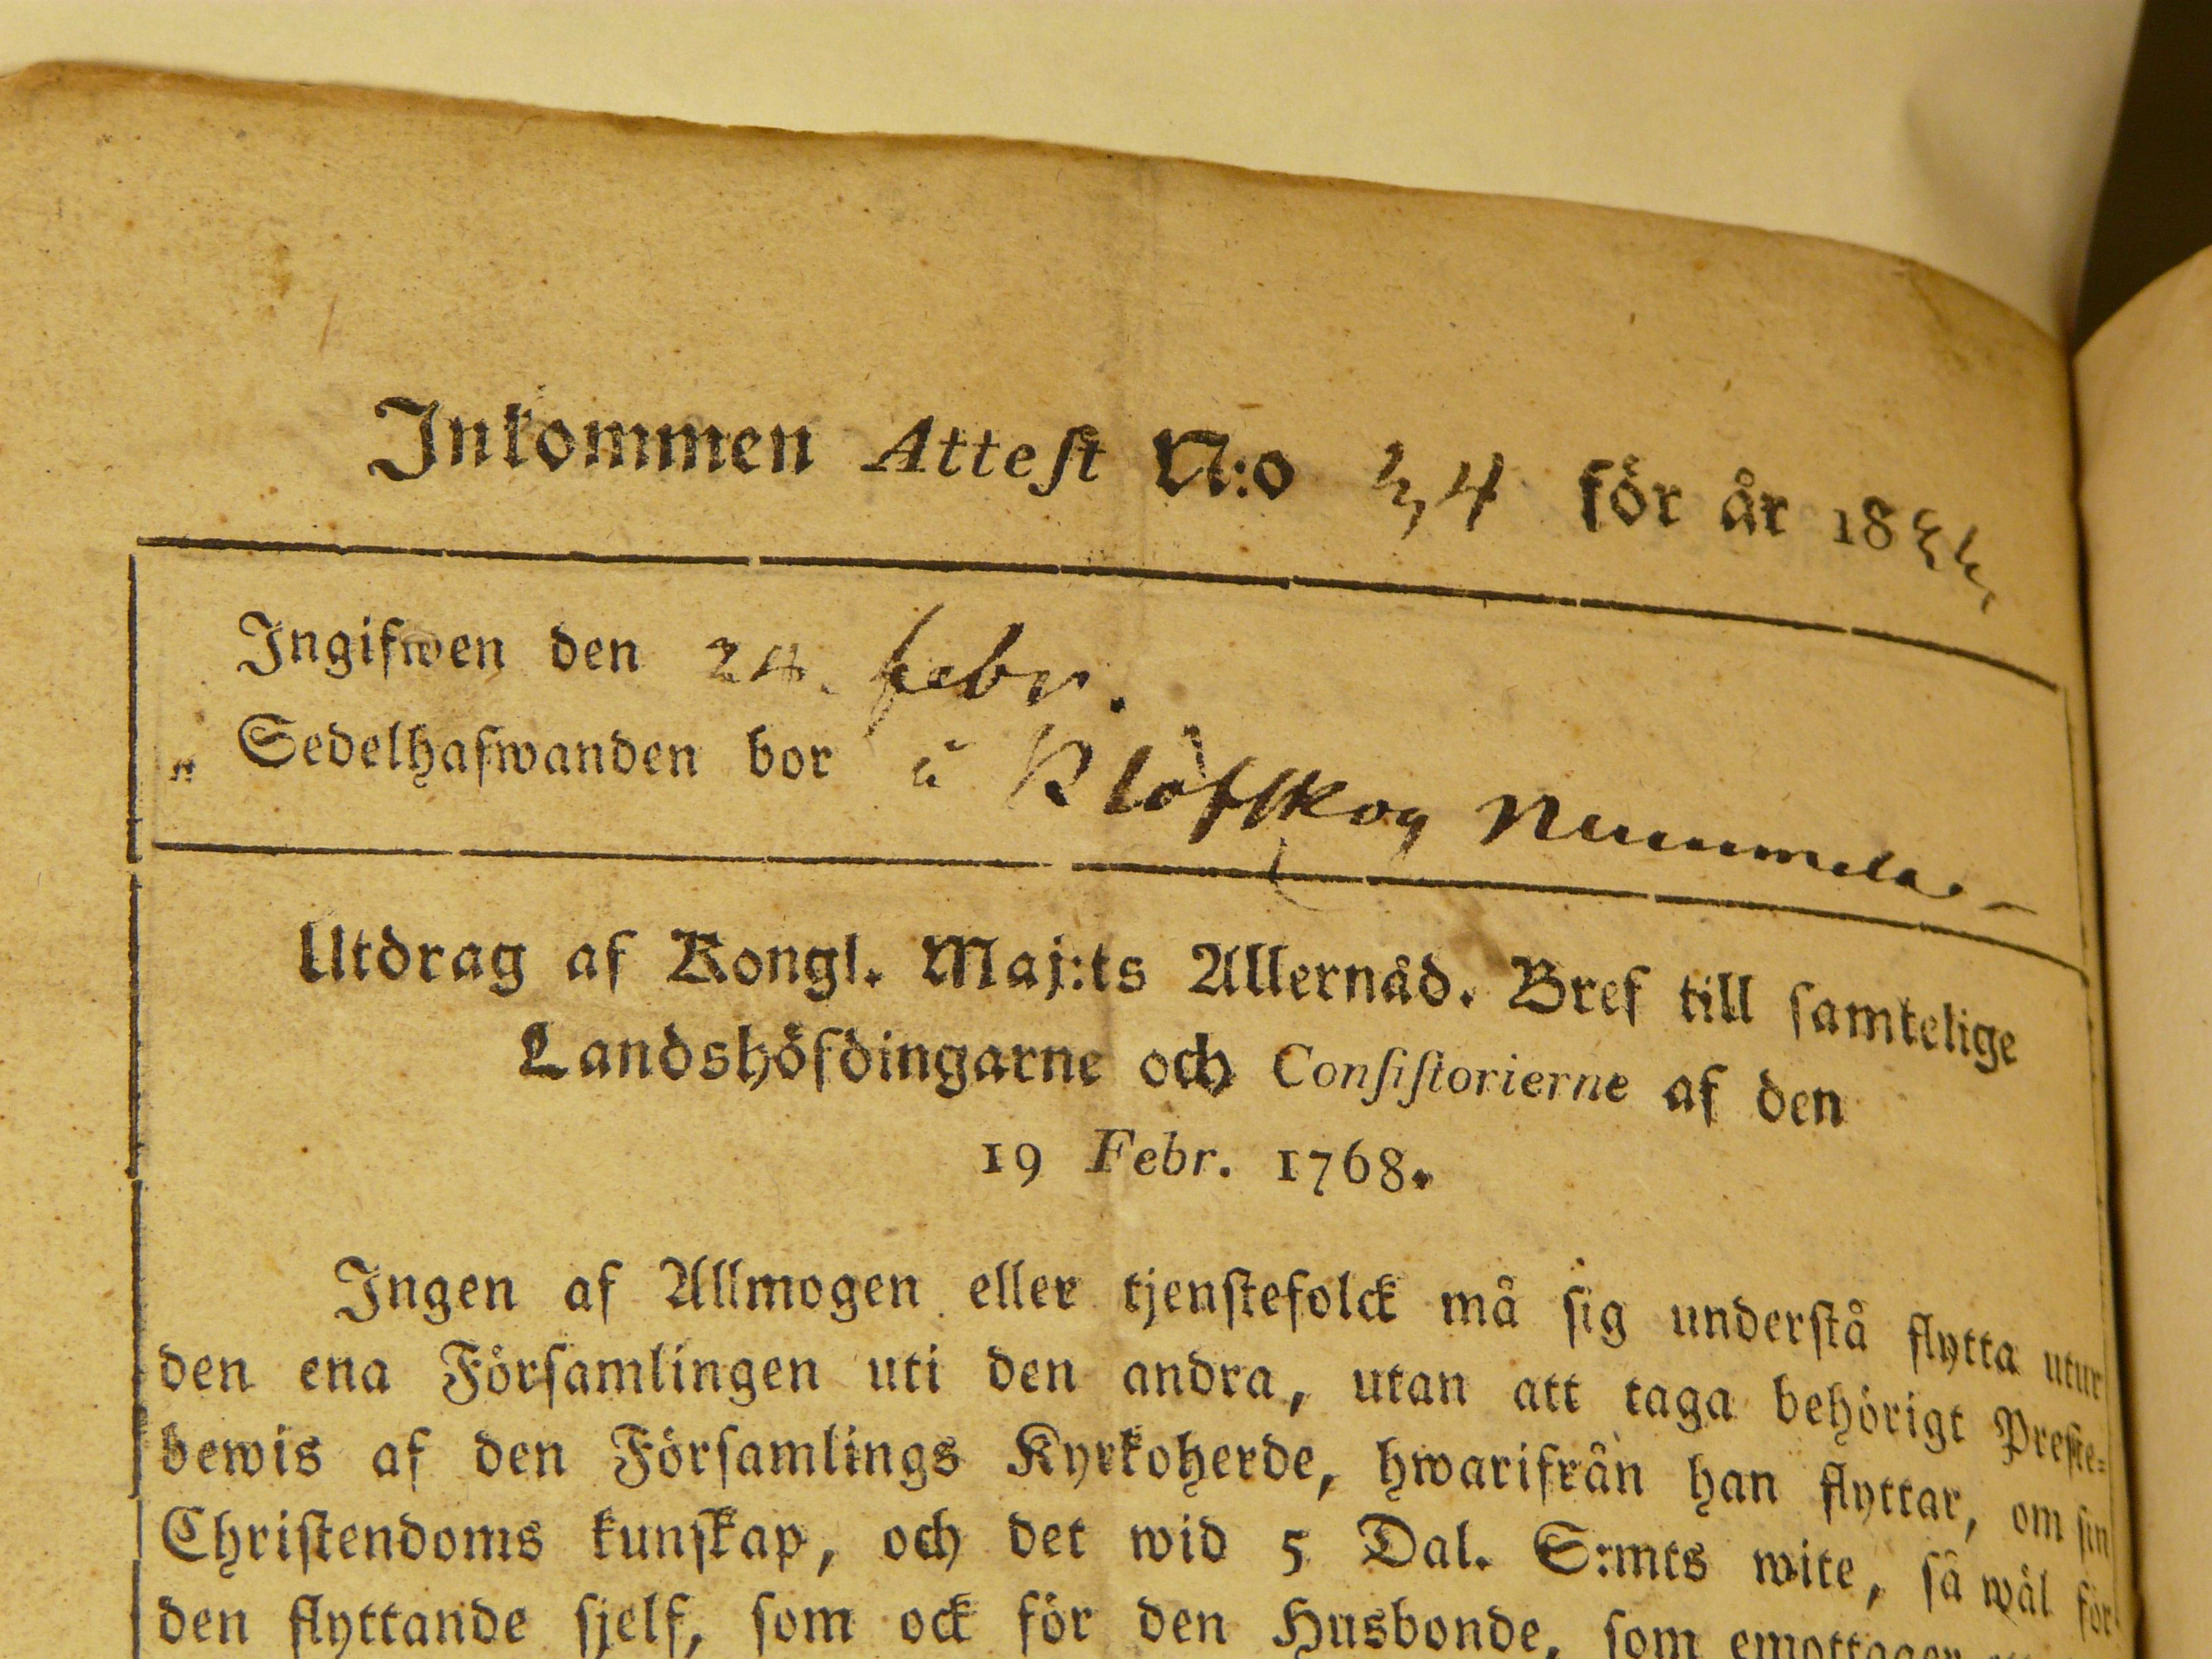 Inkommen Attest N:o 34 för år 18
Ingifwen den 24. febr.
„ Sedelhafwanden bor å Klöfskog Nummela.
Utdrag af Kongl. Maj:ts Allernåd. Bref till samtelige
Landshöfdingarne och Consistorierne af den
19 Febr. 1768.
Ingen af Allmogen eller tjenstefolck må sig understå flytta utur
den ena Församlingen uti den andra, utan att taga behörigt Preste-
bewis af den Församlings Kyrkoherde, hwarifrån han flyttar, om sin
Christendoms kunskap, och det wid 5 Dal. S:mts wite, så wäl för
den flyttande sjelf, som ock för den Husbonde, som emottager